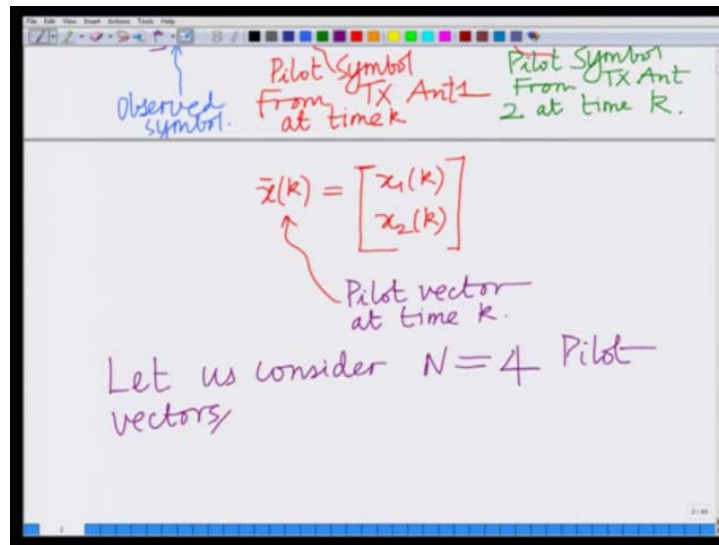 File Edit View Insert Actions Tools Help
Observed
symbol.
Pilot Symbol
From TX Ant 1
at time k
Pilot Symbol
From TX Ant
2 at time k.
x̄(k) = [x₁(k)
x₂(k)]
Pilot vector
at time k.
Let us consider N = 4 Pilot
vectors,
2